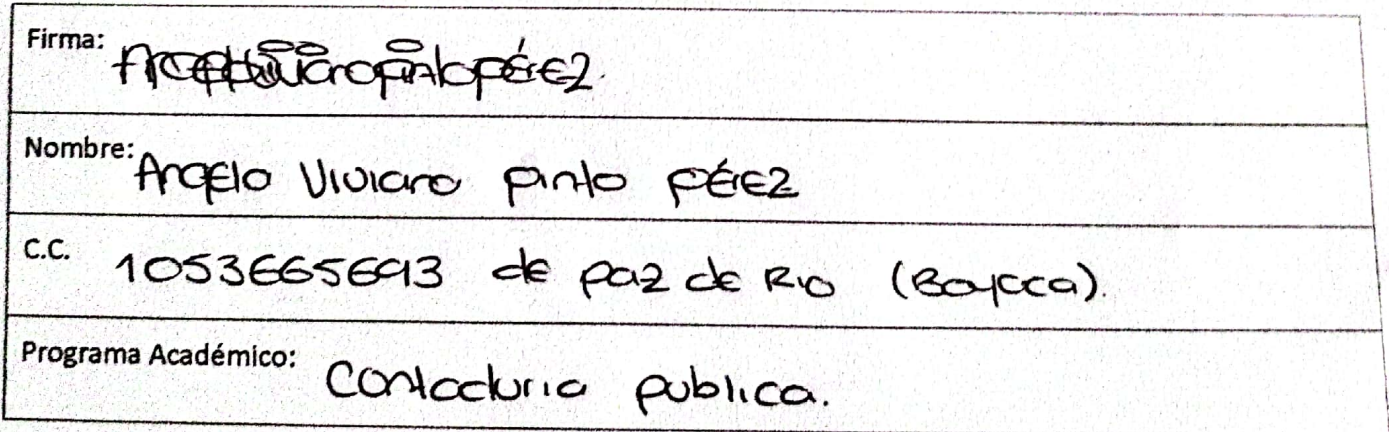 Firma:
Nombre: Angela Viviana Pinto Pérez
C.C. 1053665693 de Paz de Rio (Boyaca).
Programa Académico: Contaduria publica.